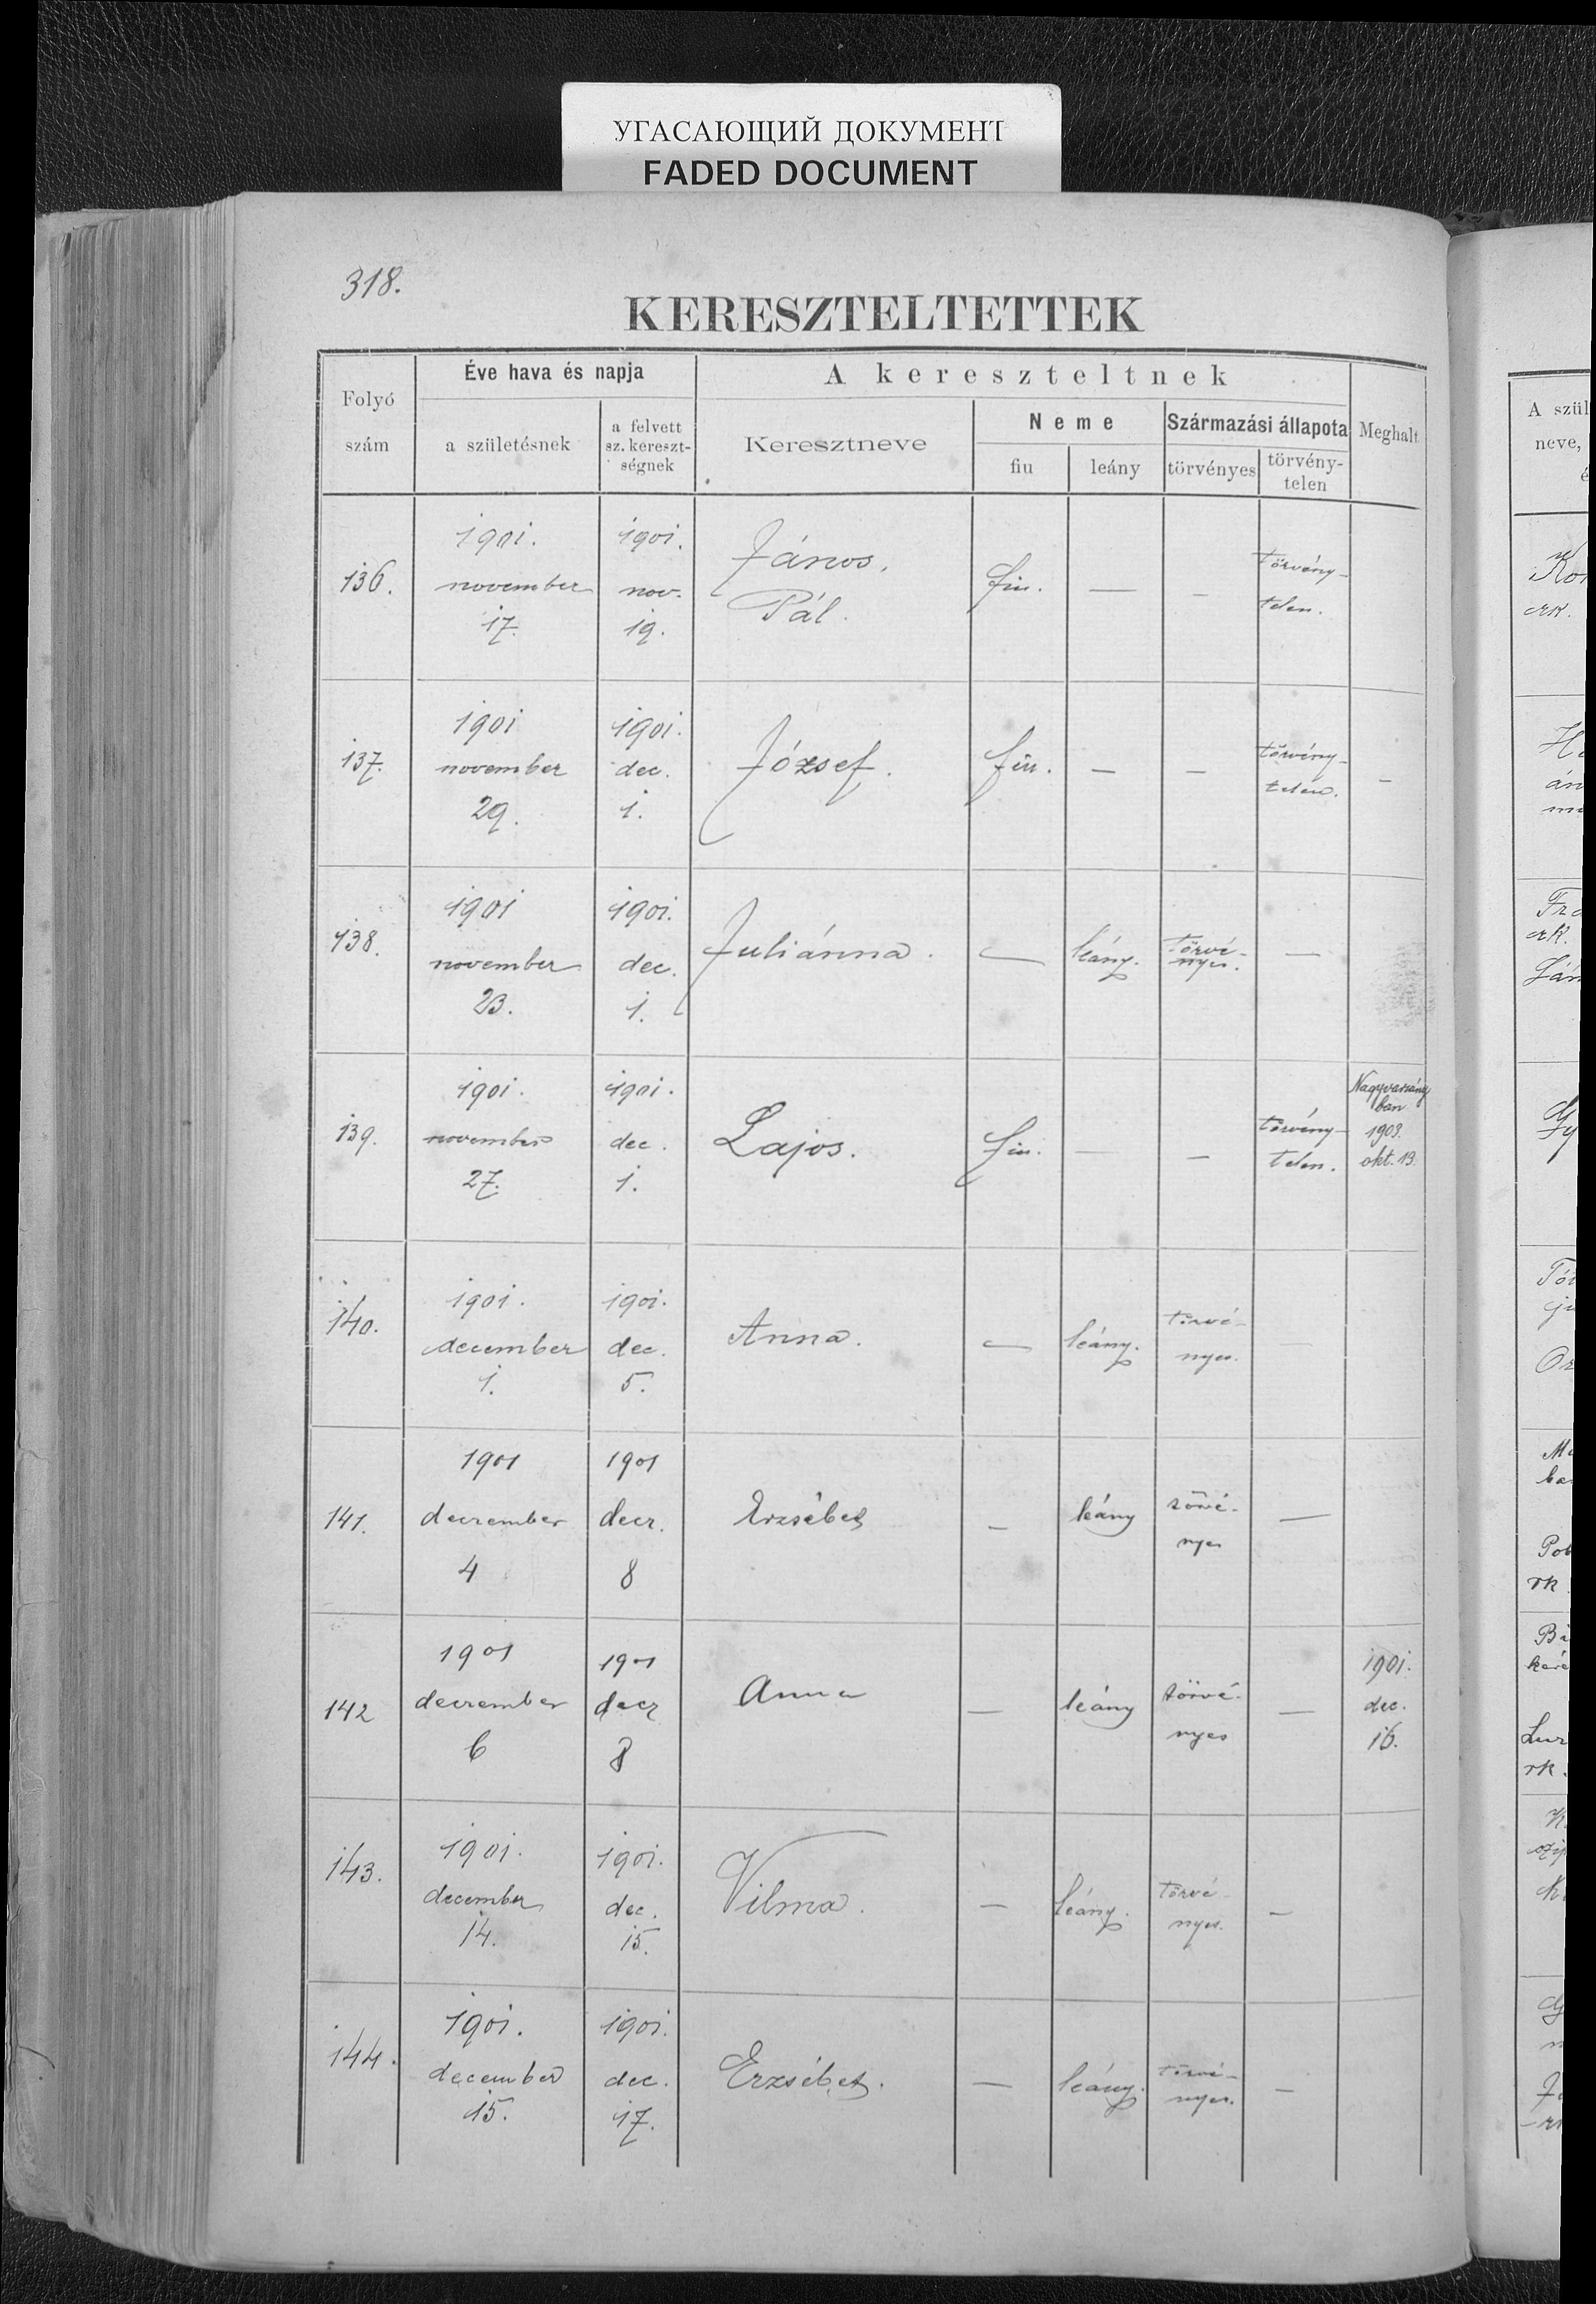 УГАСАЮЩИЙ ДОКУМЕНТ
FADED DOCUMENT
318.
KERESZTELTETTEK
Folyó
szám
Éve hava és napja
a születésnek
a felvett
sz. kereszt-
ségnek
A kereszteltnek
Keresztneve
Neme
fiu
leány
Származási állapota
törvényes
törvény-
telen
Meghalt
136.
1901.
november
17.
1901.
nov.
19.
János.
Pál.
fiu.
—
—
törvény-
telen.
137.
1901
november
29.
1901.
dec.
1.
József.
fiu.
—
—
törvény-
telen.
—
138.
1901
november
23.
1901.
dec.
1.
Juliánna.
—
leány.
törvé-
nyes.
—
139.
1901.
november
27.
1901.
dec.
1.
Lajos.
fiu.
—
—
törvény-
telen.
Nagyvarsány
ban
1903.
okt. 13.
140.
1901.
december
1.
1901.
dec.
5.
Anna.
—
leány.
törvé-
nyes.
—
141.
1901
decrember
4
1901
decr.
8
Erzsébet
—
leány
törvé-
nyes
—
142
1901
decrember
6
1901
decr
8
Anna
—
leány
törvé-
nyes
—
1901.
dec.
16.
143.
1901.
december
14.
1901.
dec.
15.
Vilma.
—
leány.
törvé-
nyes.
—
144.
1901.
december
15.
1901.
dec.
17.
Erzsébet.
—
leány.
törvé-
nyes.
—
A szül
neve,
é
erk.
án
Fra
erk.
Or
rk
rk.